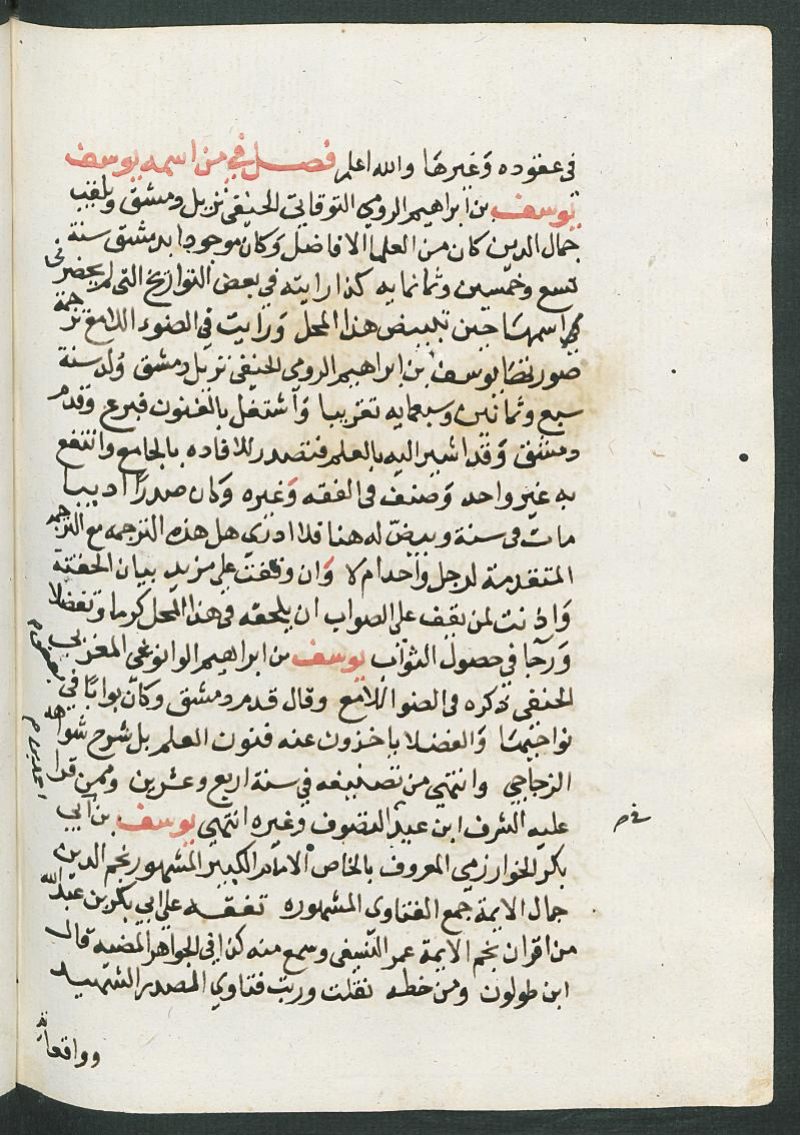 في عقوده وغيرها والله اعلم فصل في من اسمه يوسف
يوسف بن ابراهيم الرومي التوقاتي الحنفي نزيل دمشق ويلقب
جمال الدين كان من العلما الافاضل وكان موجودا بدمشق سنة
تسع وخمسين وثمانمايه كذا رايته في بعض التواريخ التي لم يحضرني
اسمها حين تبييض هذا المحل ورايت في الضوء اللامع ترجمة
صورتها يوسف بن ابراهيم الرومي الحنفي نزيل دمشق ولد سنة
سبع وثمانين وسبعمايه تقريبا واشتغل بالفنون فبرع وقدم
دمشق وقد اشير اليه بالعلم فتصدر للافاده بالجامع وانتفع
به غير واحد وصنف في الفقه وغيره وكان صدرا اديبا
مات في سنة وبيض له هنا فلا ادري هل هذه الترجمه مع الترجمه
المتقدمة لرجل واحد ام لا وان وقفت على مزيد بيان الحقته
واذنت لمن يقف على الصواب ان يلحقه في هذا المحل كرما وتفضلا
ورجا في حصول الثواب يوسف بن ابراهيم الوانوغي المغربي
الحنفي ذكره في الضوا اللامع وقال قدم دمشق وكان بوابا في بعض
نواحيها والفضلا ياخذون عنه فنون العلم بل شرح شواهد
الزجاجي وانتهى من تصنيفه في سنة اربع وعشرين وممن قرا
عليه الشرف ابن عيد التصوف وغيره انتهي يوسف بن ابي
بكر الخوارزمي المعروف بالخاص الامام الكبير المشهور نجم الدين
جمال الايمة جمع الفتاوى المشهوره تفقه على ابي بكر بن عبد الله
من اقران نجم الايمة عمر النسفي وسمع منه كذا في الجواهر المضيه قال
ابن طولون ومن خطه نقلت ورتب فتاوي الصدر الشهيد
وواقعاته